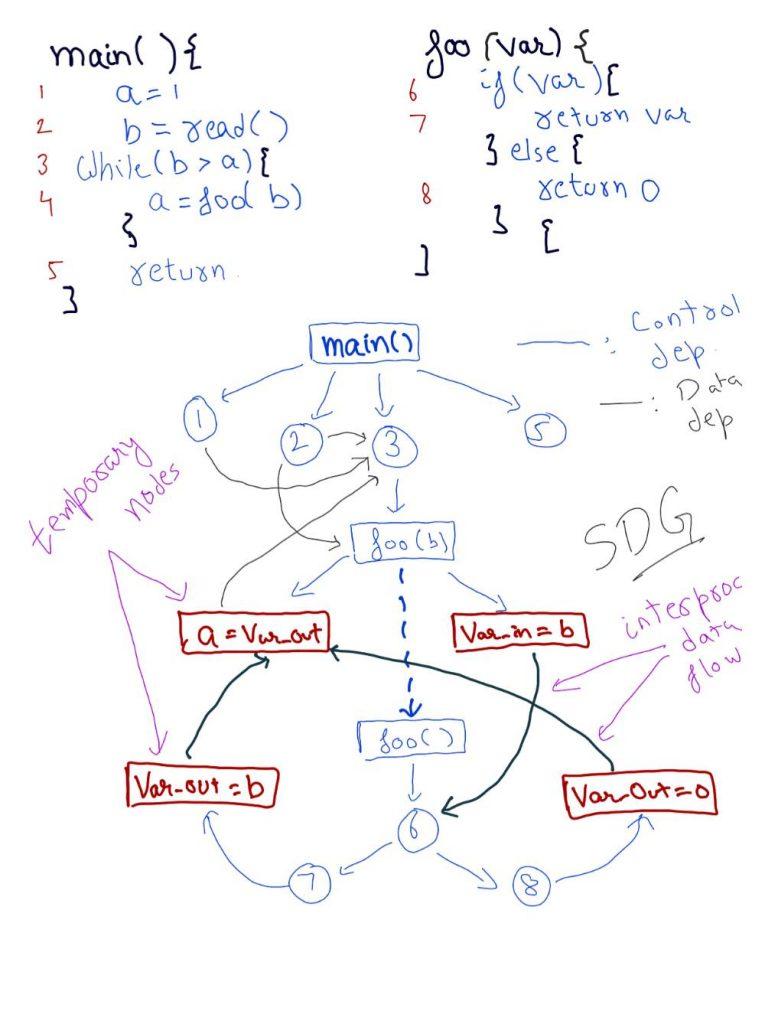 main( ){
1 a = 1
2 b = read()
3 while(b > a){
4 a = foo( b)
}
5 return
}
foo (var) {
6 if(var){
7 return var
} else {
8 return 0
} {
]
main()
: Control dep.
: Data dep
1
2
3
5
temporary nodes
foo(b)
SDG
a = Var_out
Var_in = b
interproc data flow
foo()
Var_out = b
Var_Out = 0
6
7
8